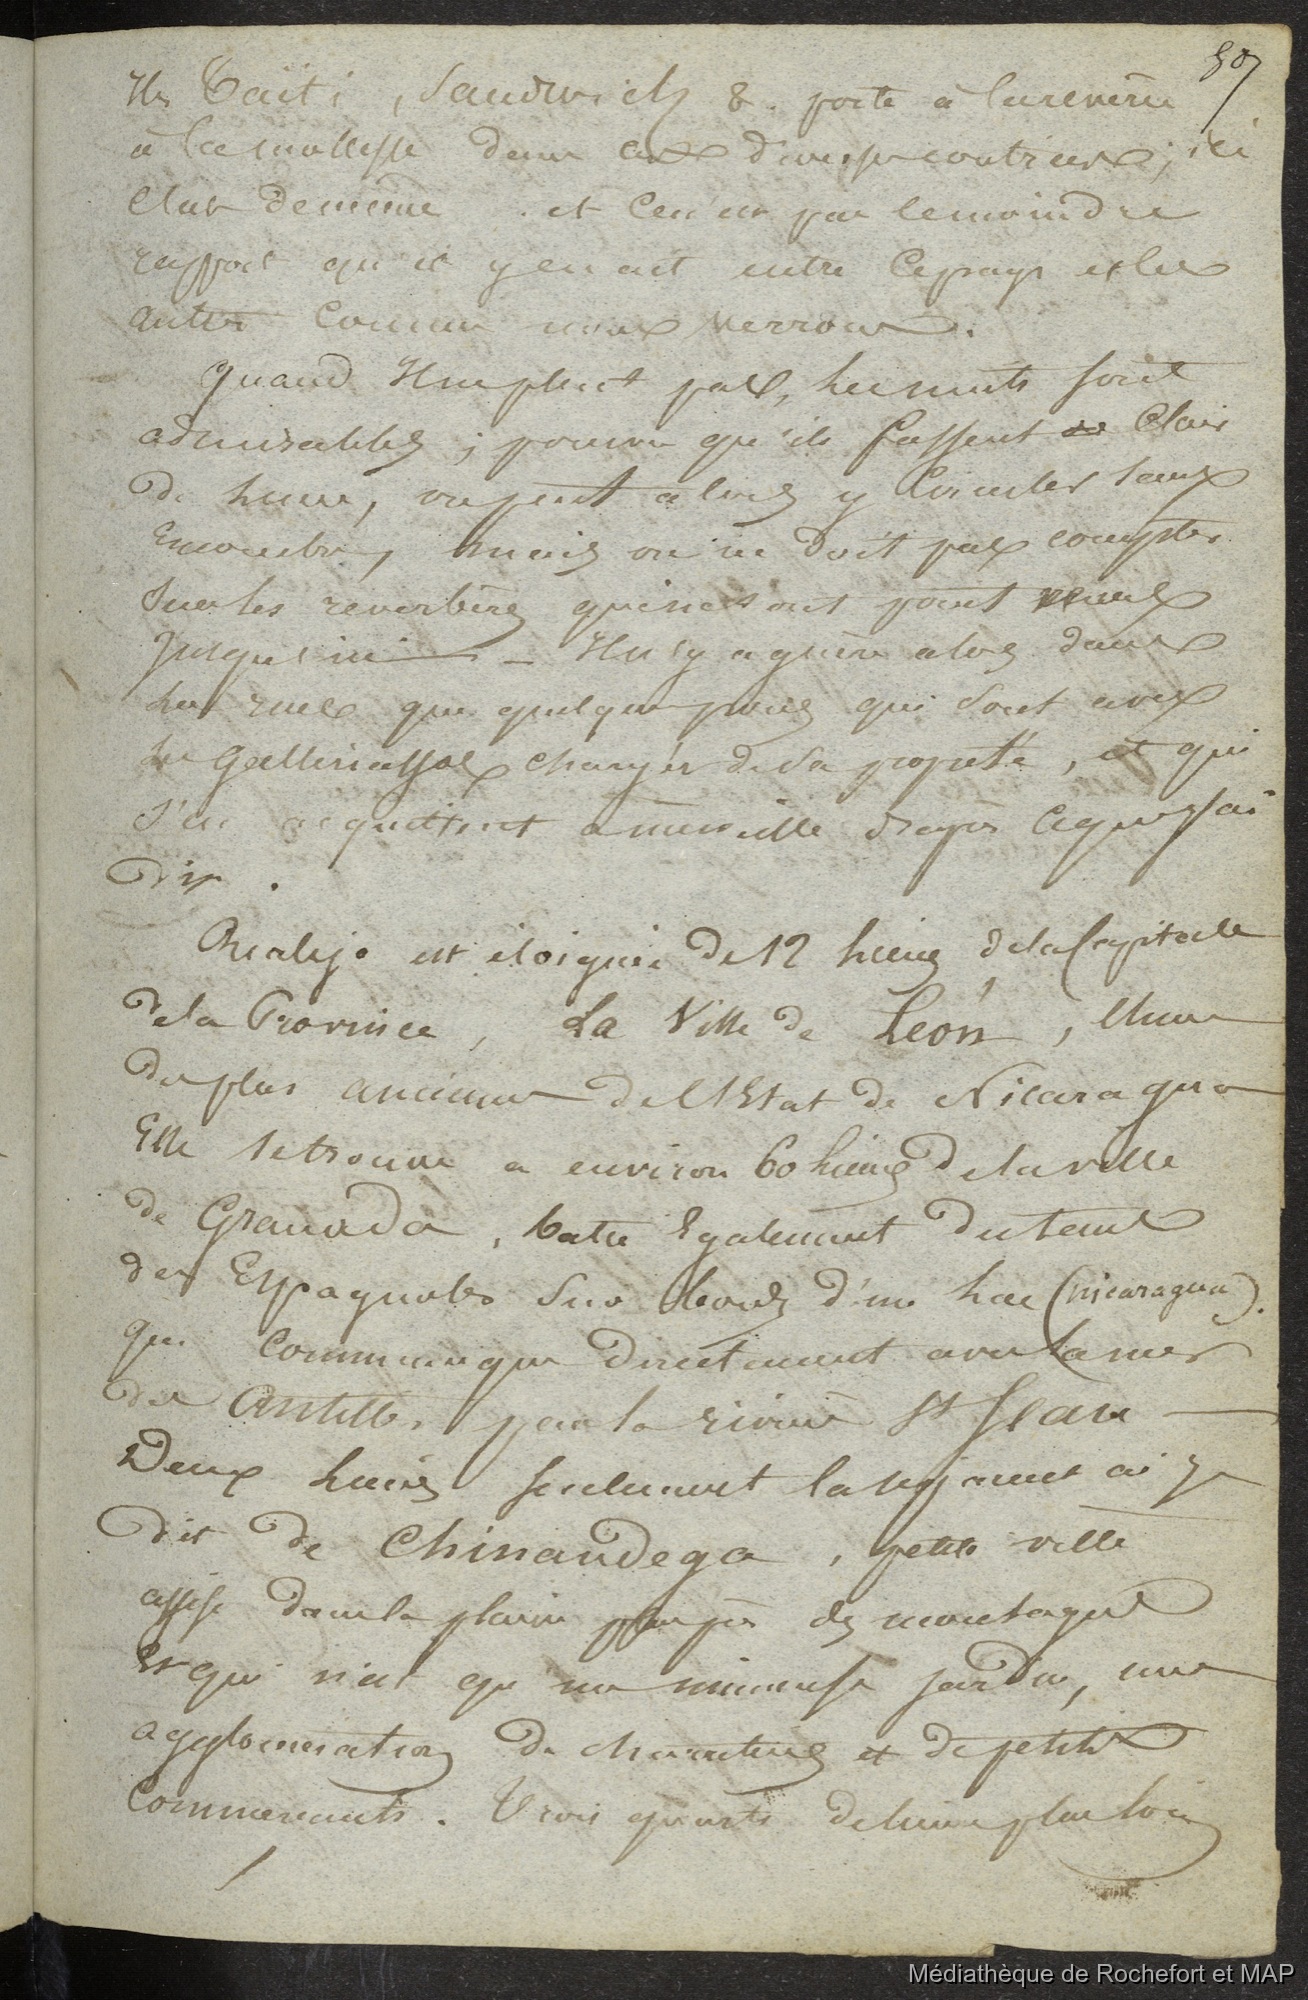 507
Iles Taïti, Sandwich &. porte à la reverie
à la mollesse dans ces diverses contrées ; ici
c'est de meme . et ce n'est pas le moindre
rapport qu'il y en ait entre ce pays et les
autres comme nous verrons.
Quand Il ne pleut pas, les nuits sont
admirables ; pourvu qu'ils fassent clair
de lune, on peut alors y circuler sans
Encombre, mais on ne doit pas compter
sur les reverbères qui ne sont point venus
jusqu'ici — Il n'y a guère alors dans
les rues que quelques porcs qui sont avec
les gallinassos chargés de la propreté, et qui
s'en acquittent à merveille d'après ce que j'ai
dit .
Realejo est éloigné de 12 lieues de la Capitale
de la Province, La Ville de Léon, l'une
des plus anciennes de l'Etat de Nicaragua
Elle se trouve a environ 60 lieues de la ville
de Granada, batie Egalement du tems
des Espagnoles sur les bords d'un lac (nicaragua).
qui communique directement avec la mer
des Antilles par la rivière St Jean —
Deux lieues seulement la séparent ai-je
dit de Chinandega, petite ville
assise dans la plaine au pied des montagnes
Et qui n'est qu'un immense jardin, une
agglomeration de chaumières et de petits
Commercants. Trois quarts de lieue plus loin
Médiathèque de Rochefort et MAP